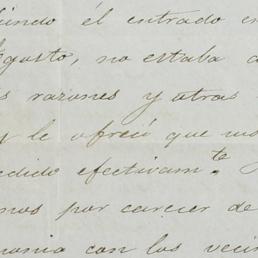 él entrado en
gosto, no estaba
s razones y otras
y le ofreció que
edido efectivam.te
mos por carecer de
monia con los veci